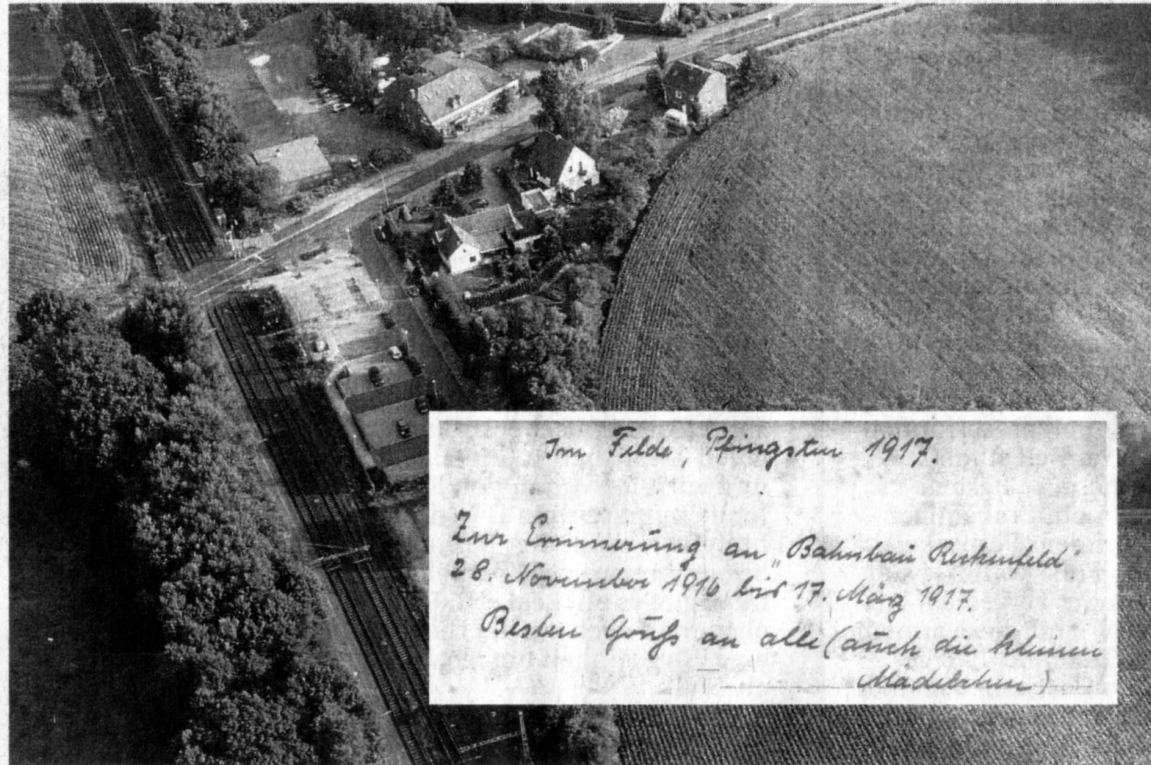 Im Felde, Pfingsten 1917.
Zur Erinnerung an „Bahnbau Reckenfeld“
28. November 1916 bis 17. März 1917.
Besten Gruß an alle (auch die kleinen
Mädelchen)